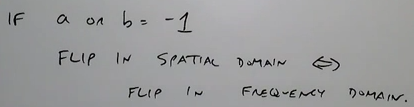 IF a or b = -1
FLIP IN SPATIAL DOMAIN ⇔
FLIP IN FREQUENCY DOMAIN.